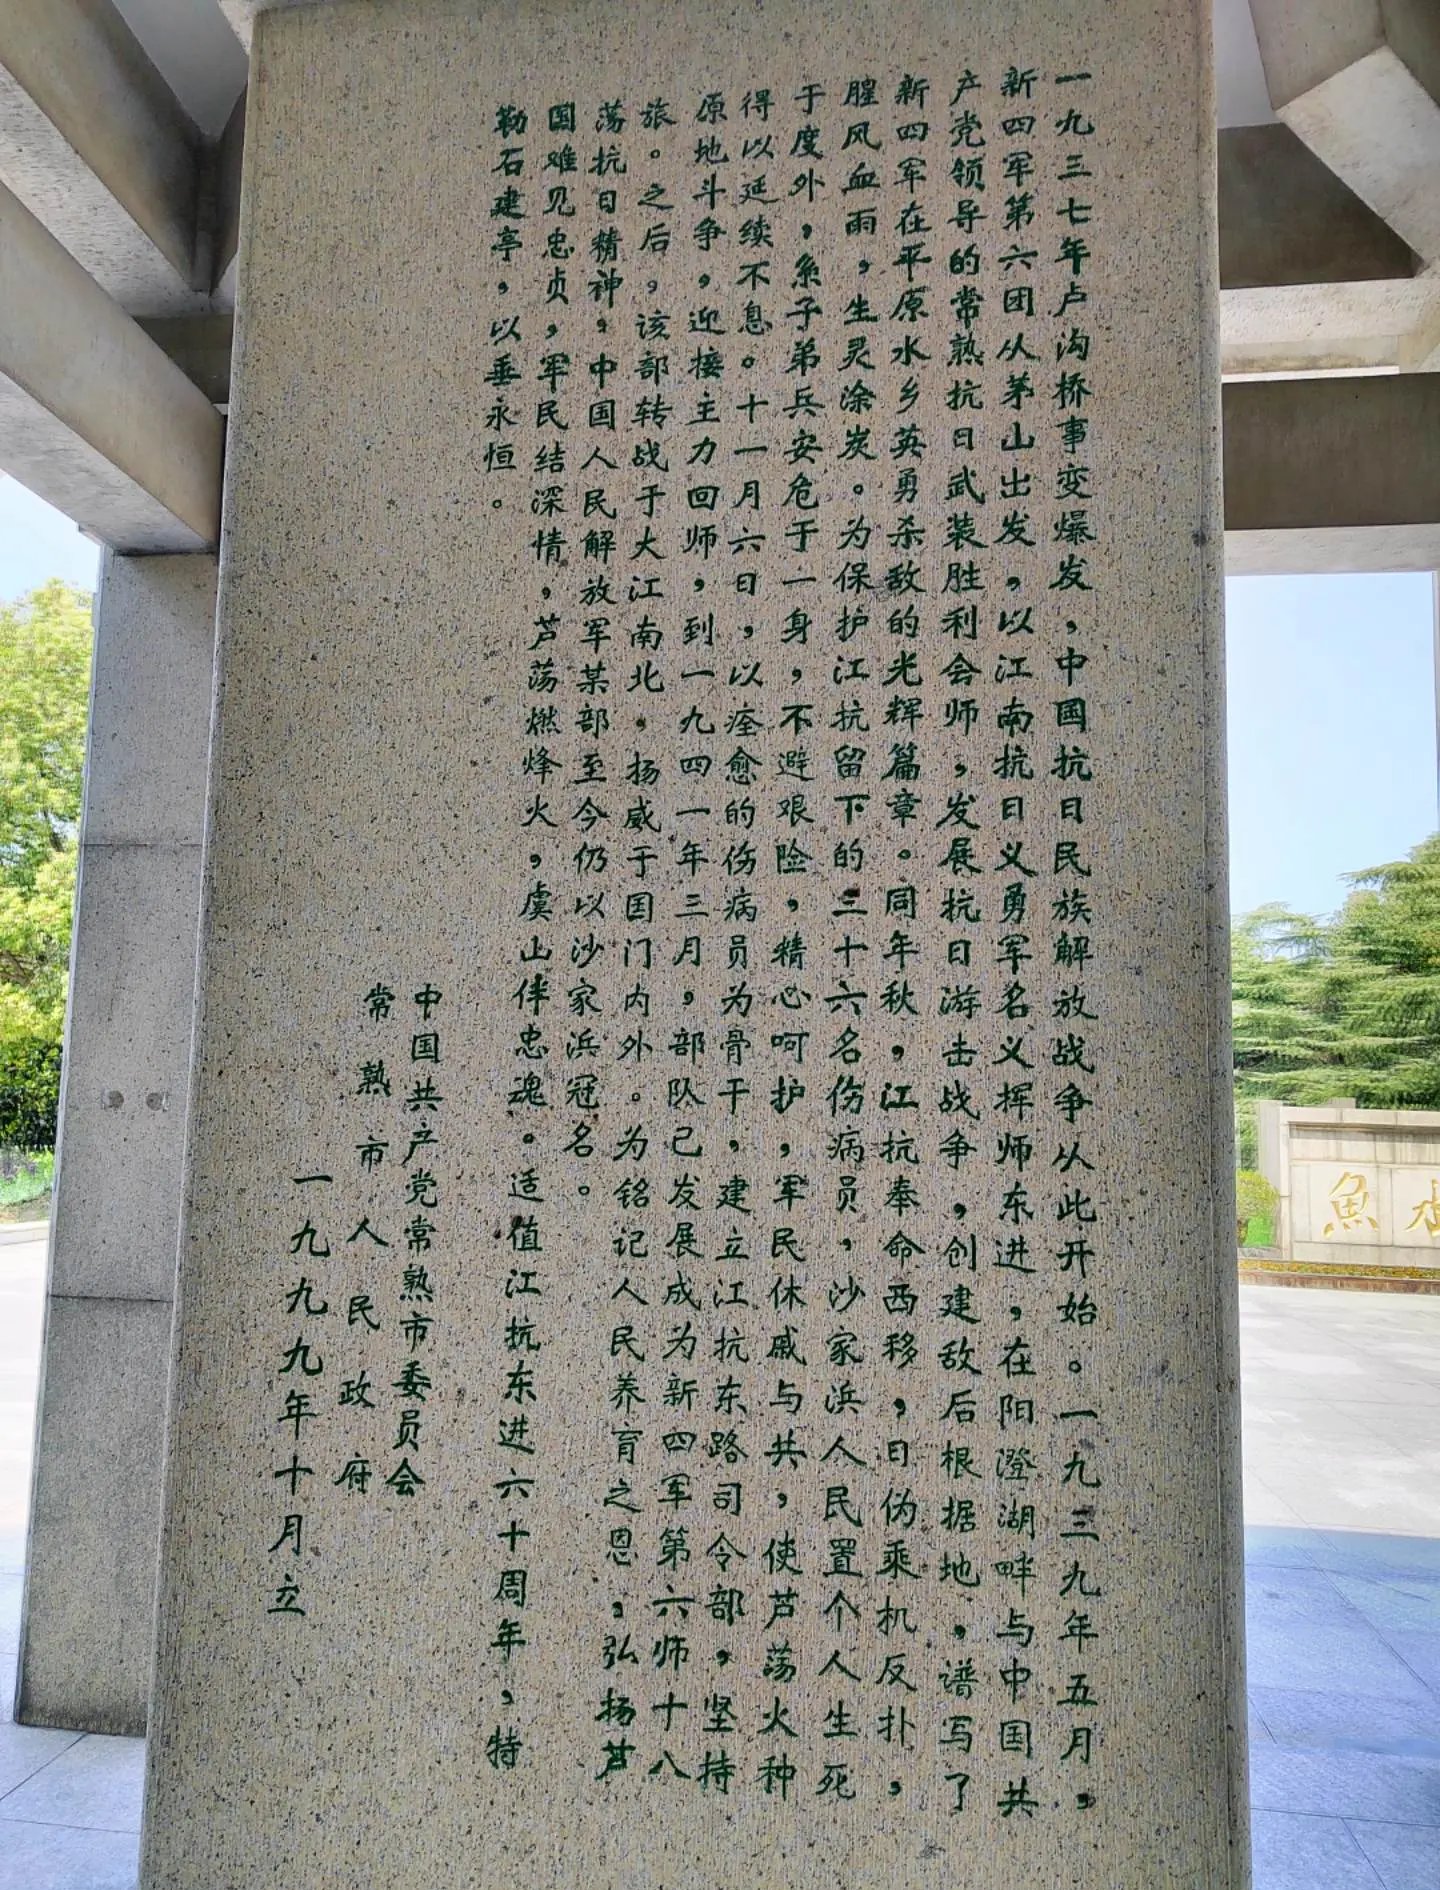 一九三七年卢沟桥事变爆发，中国抗日民族解放战争从此开始。一九三九年五月，
新四军第六团从茅山出发，以江南抗日义勇军名义挥师东进，在阳澄湖畔与中国共
产党领导的常熟抗日武装胜利会师，发展抗日游击战争，创建敌后根据地，谱写了
新四军在平原水乡英勇杀敌的光辉篇章。同年秋，江抗奉命西移，日伪乘机反扑，
腥风血雨，生灵涂炭。为保护江抗留下的三十六名伤病员，沙家浜人民置个人生死
于度外，系子弟兵安危于一身，不避艰险，精心呵护，军民休戚与共，使芦荡火种
得以延续不息。十一月六日，以痊愈的伤病员为骨干，建立江抗东路司令部，坚持
原地斗争，迎接主力回师，到一九四一年三月，部队已发展成为新四军第六师十八
旅。之后，该部转战于大江南北，扬威于国门内外。为铭记人民养育之恩，弘扬芦
荡抗日精神，中国人民解放军某部至今仍以沙家浜冠名。
国难见忠贞，军民结深情，芦荡燃烽火，虞山伴忠魂。适值江抗东进六十周年，特
勒石建亭，以垂永恒。
中国共产党常熟市委员会
常熟市人民政府
一九九九年十月立
魚水